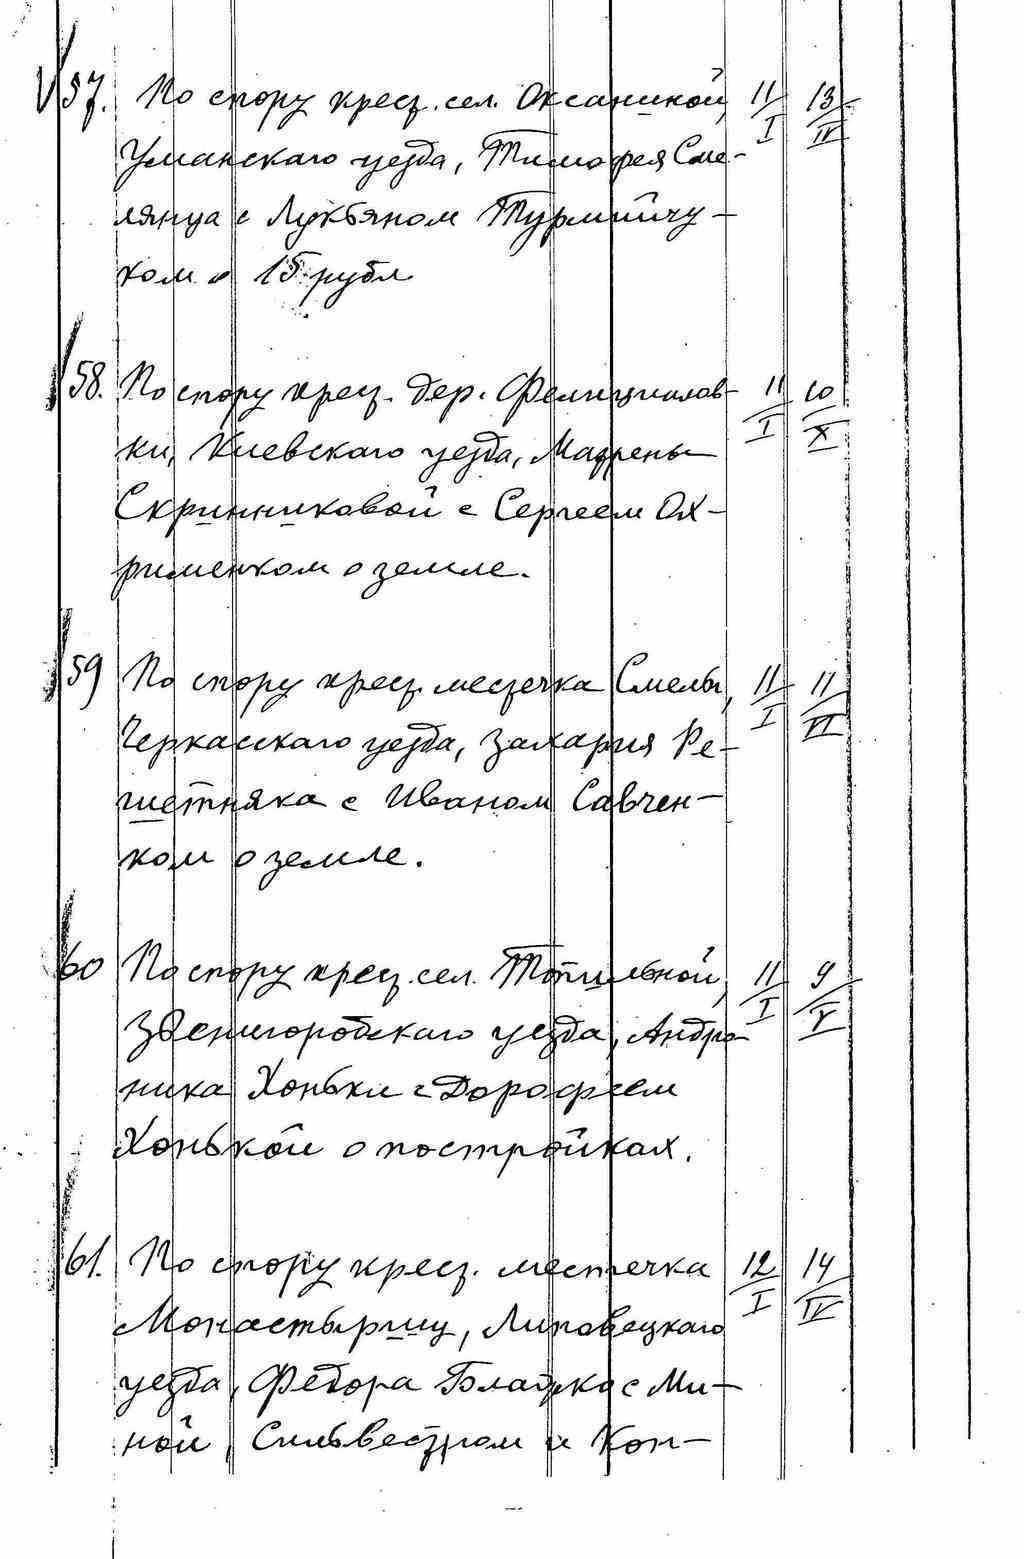 57. По спору крест. сел. Оксаниной, 11/I 13/IV
Уманскаго уезда, Тимофея Сме-
лянца с Лукьяном Турмийчу-
ком о 15 рубл
58. По спору крест. дер. Фелициалов- 11/I 10/X
ки, Киевскаго уезда, Мадрены
Скринниковой с Сергеем Ох-
рименком о земле.
59 По спору крест. местечка Смелы, 11/I 11/VI
Черкасскаго уезда, Захария Ре-
шетняка с Иваном Савчен-
ком о земле.
60 По спору крест. сел. Топильной, 11/I 9/V
Звенигородскаго уезда, Андро-
ника Хоньки с Дорофеем
Хонькой о постройках.
61. По спору крест. местечка 12/I 14/IV
Монастырищ, Липовецкаго
уезда, Федора с Ми-
ной, Сильвестром и Кон-